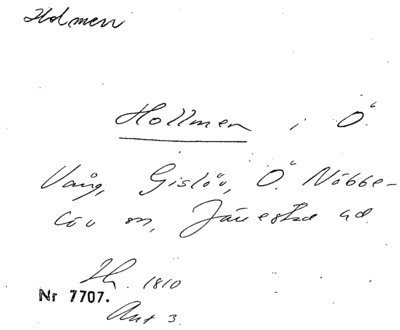 Holmen
Hollmen i Ö.
Vång, Gislöv, Ö. Nöbbe-
löv sn, Järrestad hd.
Jh. 1810
Nr 7707.
Akt 3